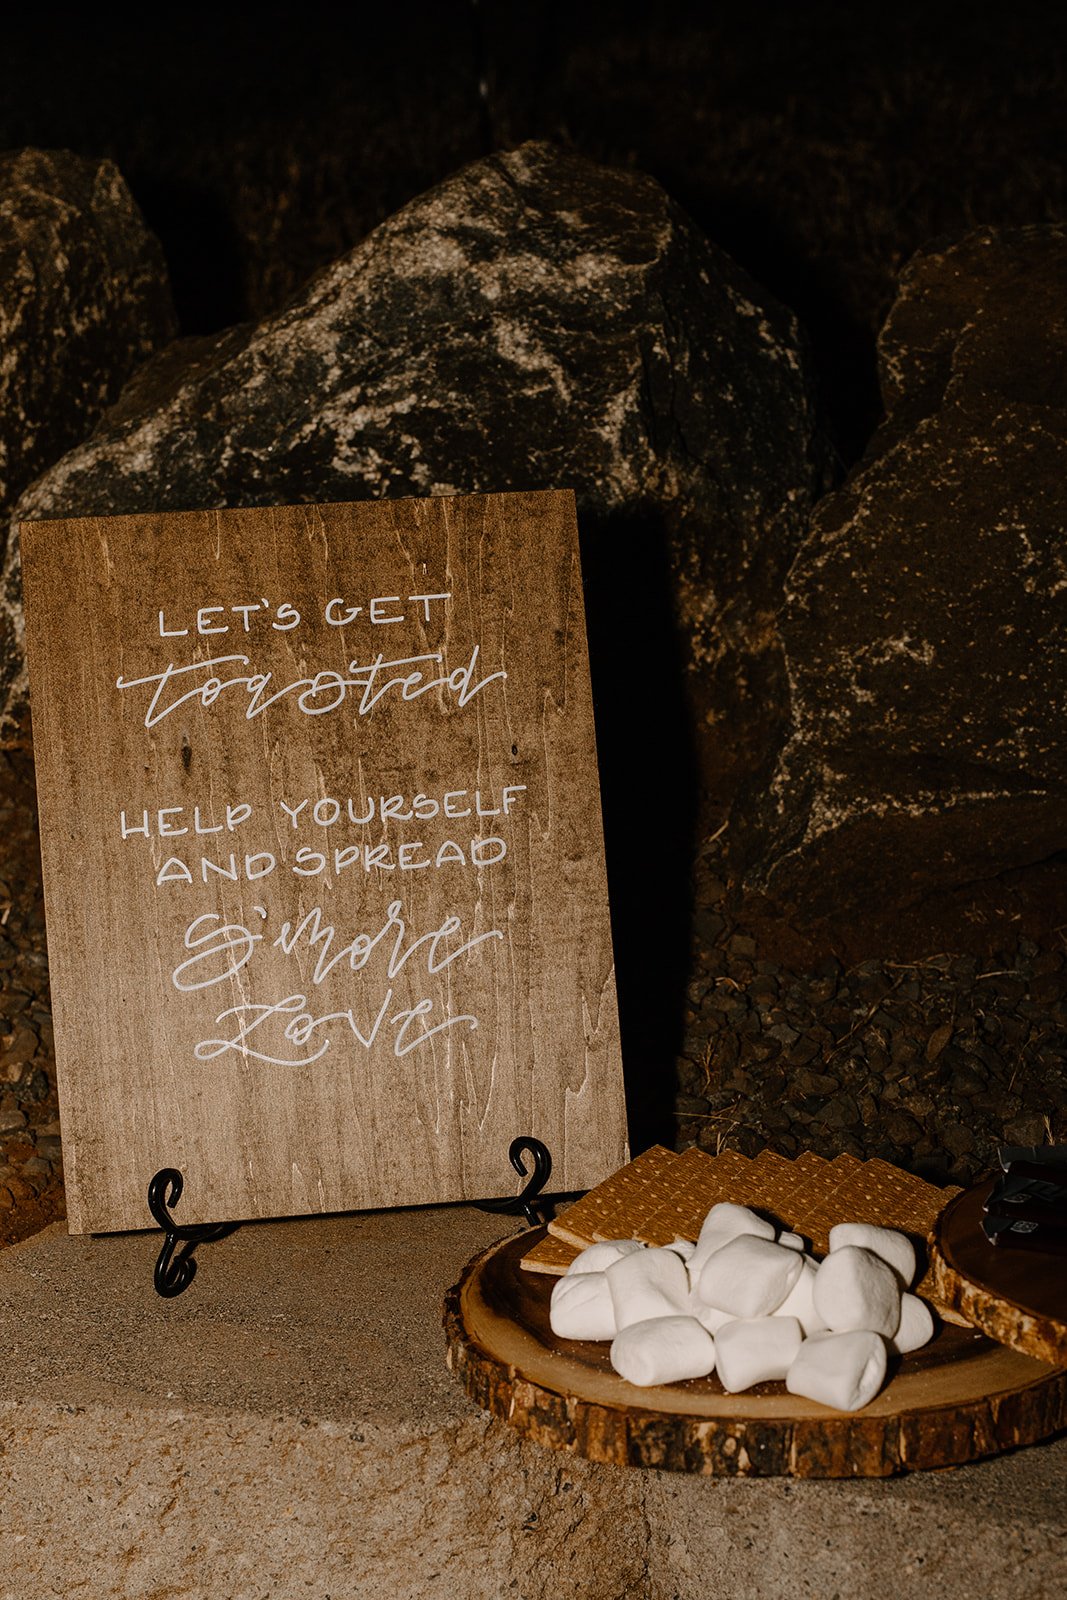 LET'S GET
toasted
HELP YOURSELF
AND SPREAD
S'more
Love